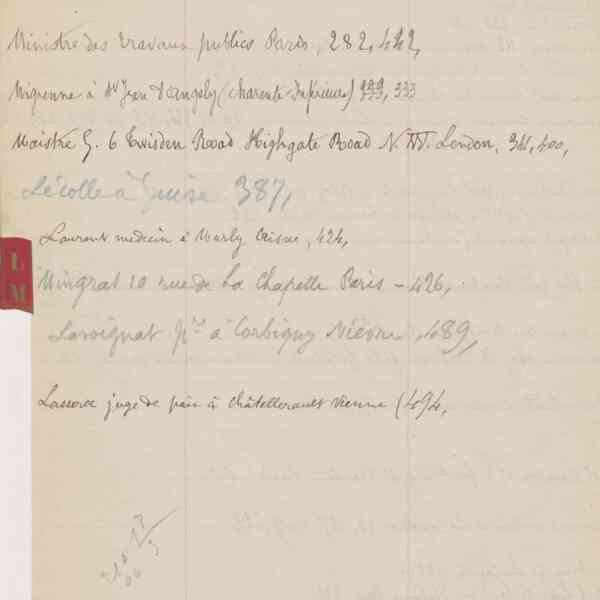 Ministre des travaux publics Paris, 282, 442,
Migrenne à St Jean d'angely (charente Inférieure) 333, 333
Maistre G. 6 Twisden Road Highgate Road N.W. London, 344, 400,
Lécolle à Guise 387,
Laurent medecin à Marly Oaisne, 424,
L
M
Mingrat 10 rue de la Chapelle Paris - 426,
Lavoignat à Corbigny Nièvre, 489,
Lassora juge de paix à Châtellerault Vienne (494,